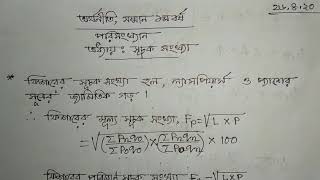 ২৮.৪.২০
অর্থনীতি, সম্মান ১ম বর্ষ
পরিসংখ্যান
অধ্যায়ঃ সূচক সংখ্যা
* ফিশারের সূচক সংখ্যা হল, ল্যাসপিয়ার্স ও প্যাসের
সূত্রের জ্যামিতিক গড়।
∴ ফিশারের মূল্য সূচক সংখ্যা, Fp = √L × P
= √(ΣPnq0/ΣP0q0) × (ΣPnqn/ΣP0qn) × 100
ফিশারের পরিমাণ সূচক সংখ্যা = √L × P